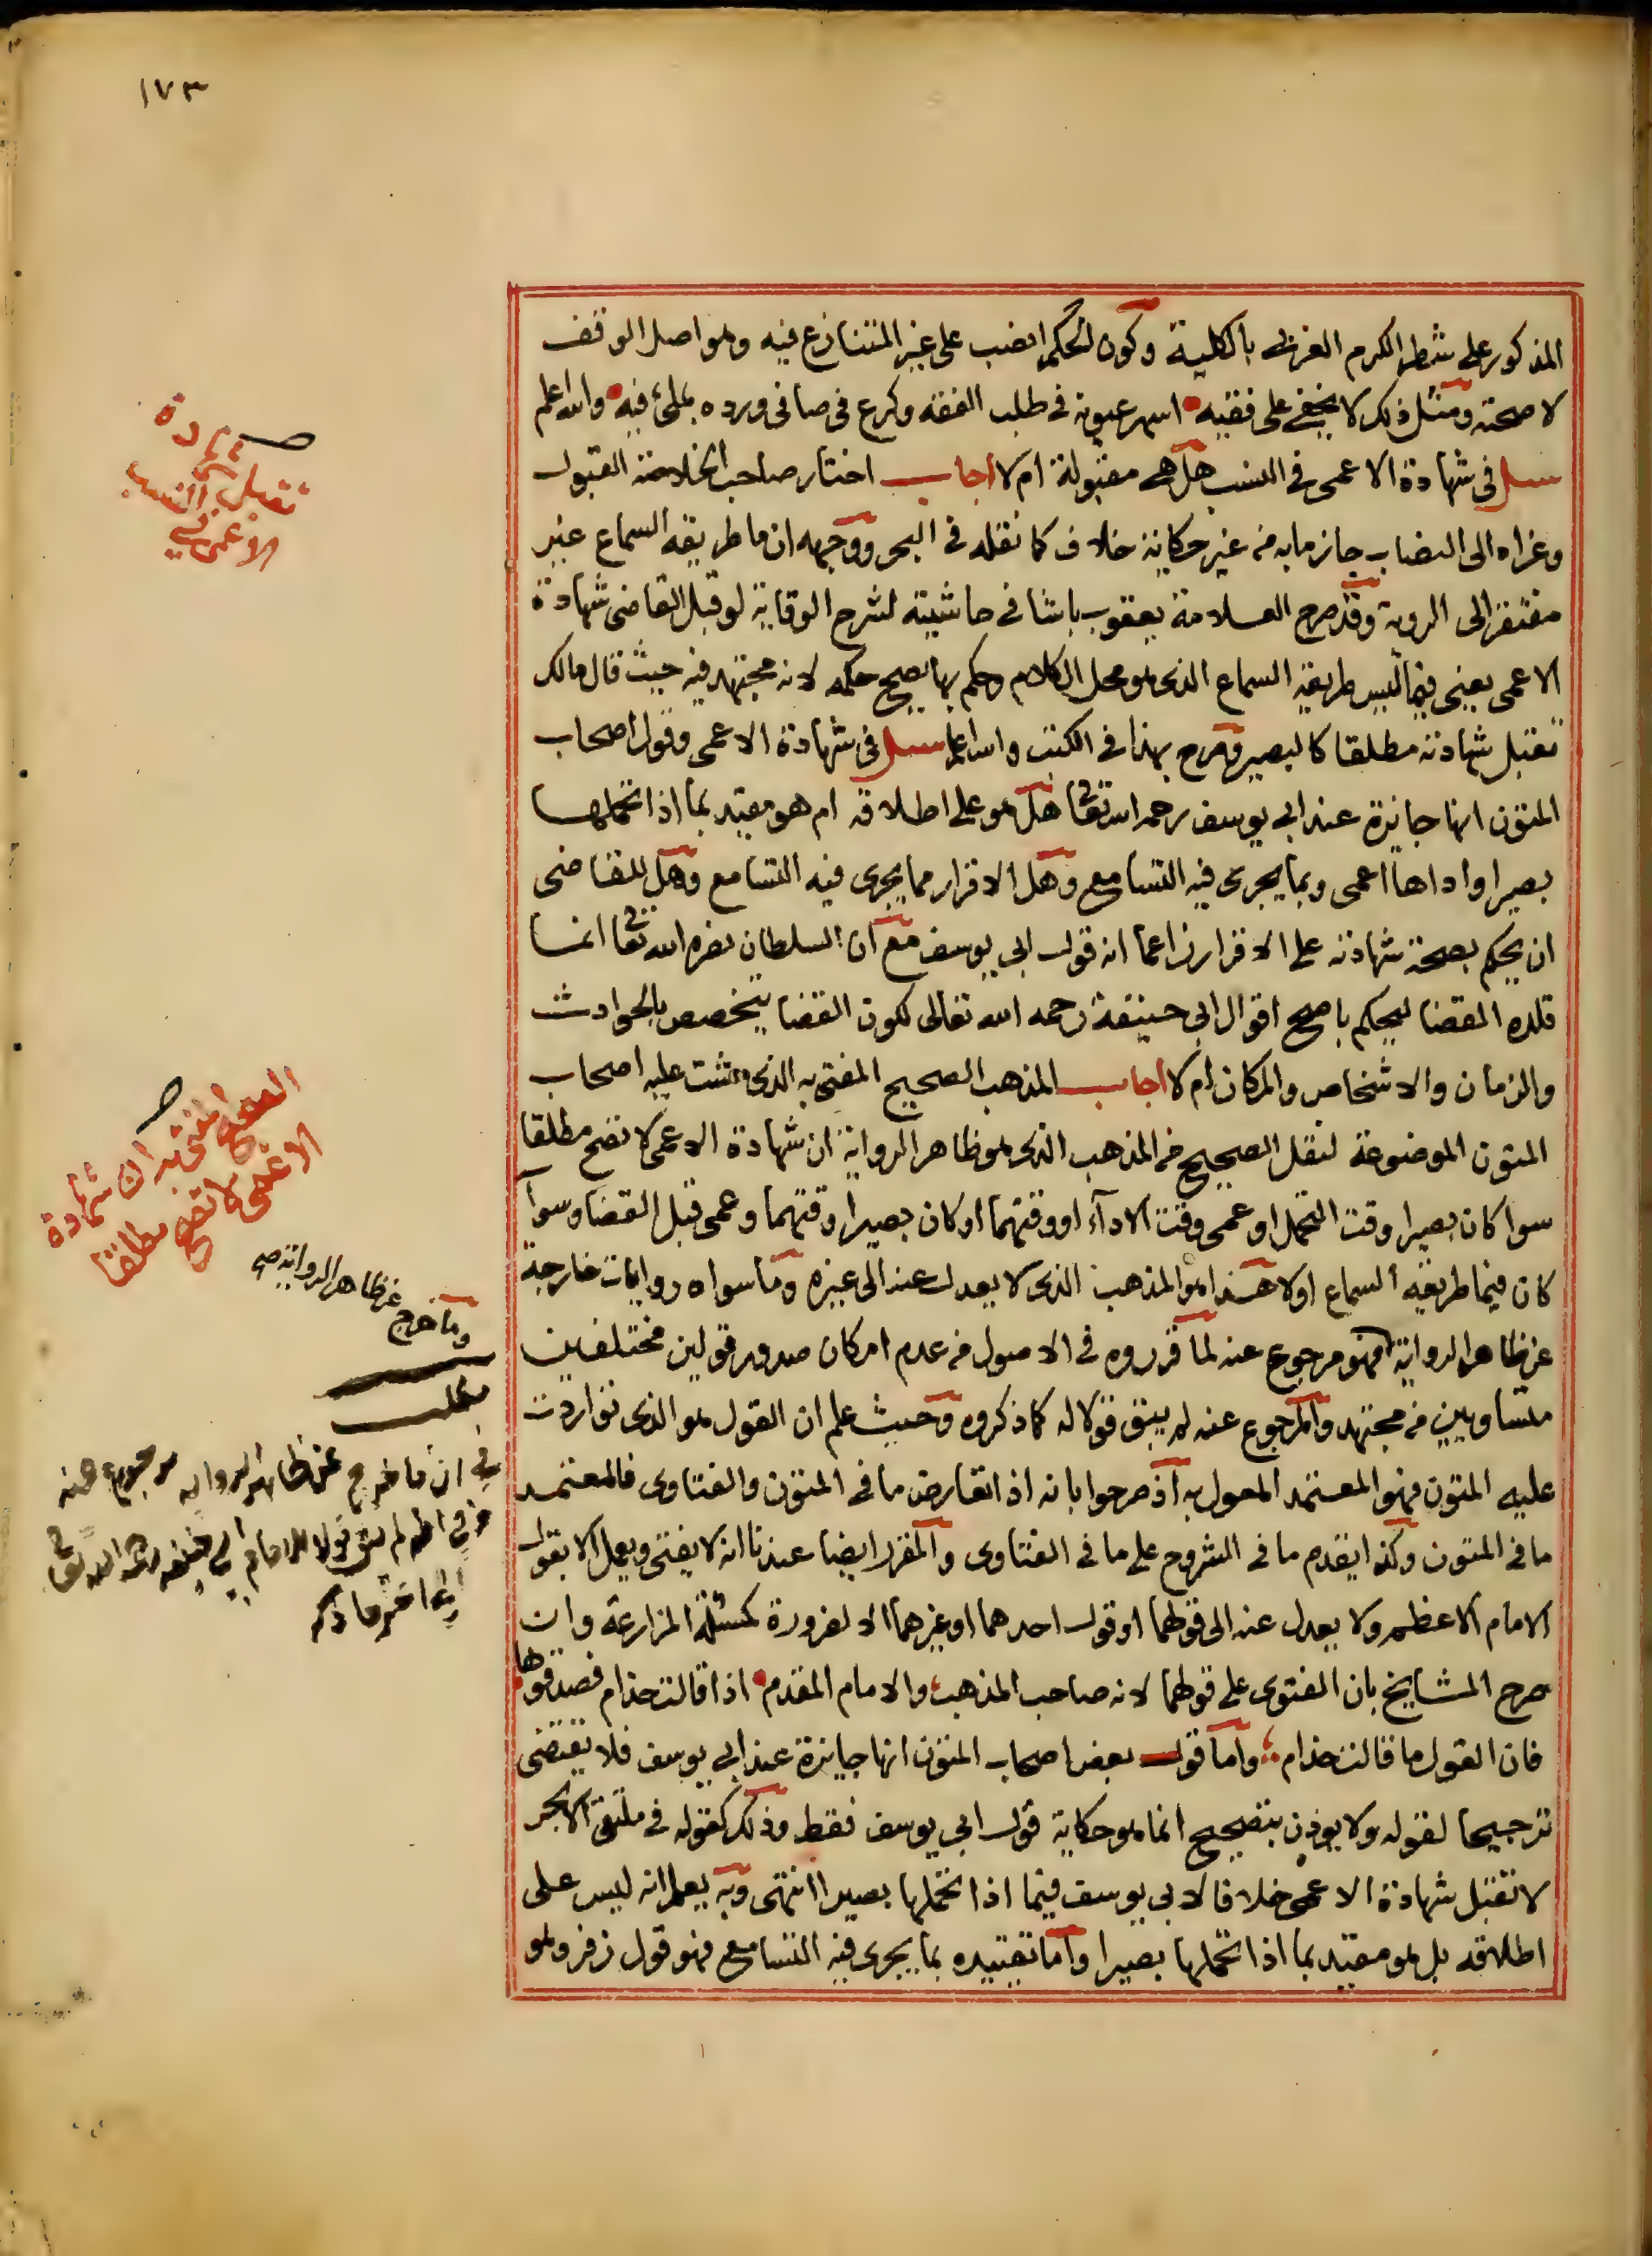 ١٧٣
المذكور على شطر الكرم الغربي بالكلية وكون الحكم انصب على غير المتنازع فيه وهو اصل الوقف
لا صحته ومثل ذلك لا يخفى على فقيه اسهر عيونه في طلب الفقه وكرع في صافي ورده بملئ فيه والله اعلم
سئل في شهادة الاعمى في النسب هل هي مقبولة ام لا اجاب اختار صاحب الخلاصة القبول
وعزاه الى النصاب جازما به من غير حكاية خلاف كما نقله في البحر ووجهه ان ما طريقه السماع غير
مفتقر الى الروية وقد صرح العلامة يعقوب باشا في حاشيته لشرح الوقاية لو قبل القاضي شهادة
الاعمى يعني فيما ليس طريقه السماع الذي هو محل الكلام وحكم بها يصح حكمه لانه مجتهد فيه حيث قال مالك
تقبل شهادته مطلقا كالبصير وصرح بهذا في الكتب والله اعلم سئل في شهادة الاعمى وقول اصحاب
المتون انها جايزة عند ابي يوسف رحمه الله تعا هل هو على اطلاقه ام هو مقيد بما اذا تحملها
بصيرا واداها اعمى وبما يجري فيه التسامع وهل الاقرار مما يجري فيه التسامع وهل للقاضي
ان يحكم بصحة شهادته على الاقرار زاعما انه قول ابي يوسف مع ان السلطان نصره الله تعا انما
قلده القضا ليحكم باصح اقوال ابي حنيفة رحمه الله تعالى لكون القضا يتخصص بالحوادث
والزمان والاشخاص والمكان ام لا اجاب المذهب الصحيح المفتى به الذي مشت عليه اصحاب
المتون الموضوعة لنقل الصحيح من المذهب الذي هو ظاهر الرواية ان شهادة الاعمى لا تصح مطلقا
سوا كان بصيرا وقت التحمل او عمى وقت الادآء او وقتهما او كان بصيرا وقتهما وعمى قبل القضا وسوآ
كان فيما طريقه السماع اولا هذا هو المذهب الذي لا يعدل عنه الى غيره وما سواه روايات خارجة
عن ظاهر الرواية فهو مرجوع عنه لما قرروه في الاصول من عدم امكان صدور قولين مختلفين
متساويين من مجتهد والمرجوع عنه لم يبق قولا له كما ذكروه وحيث علم ان القول هو الذي تواردت
عليه المتون فهو المعتمد المعول به اذ صرحوا بانه اذا تعارض ما في المتون والفتاوى فالمعتمد
ما في المتون وكذا يقدم ما في الشروح على ما في الفتاوى والمقرر ايضا عندنا انه لا يفتى ويعمل الا بقول
الامام الاعظم ولا يعدل عنه الى قولهما او قول احدهما او غيرهما الا لضرورة كمسئلة المزارعة وان
صرح المشايخ بان الفتوى على قولهما لانه صاحب المذهب والامام المقدم اذا قالت حذام فصدقوها
فان القول ما قالت حذام واما قول بعض اصحاب المتون انها جايزة عند ابي يوسف فلا يقتضي
ترجيحا لقوله ولا يوذن بتصحيح انما هو حكاية قول ابي يوسف فقط وذلك كقوله في ملتقى الابحر
لا تقبل شهادة الاعمى خلافا لابي يوسف فيما اذا تحملها بصيرا انتهى وبه يعلم انه ليس على
اطلاقه بل هو مقيد بما اذا تحملها بصيرا واما تقييده بما يجري فيه التسامع فهو قول زفر وهو
تقبل شهادة
الاعمى في النسب
الصحيح المفتى به ان شهادة
الاعمى لا تصح مطلقا
وما خرج عن ظاهر الرواية صح
مطلب
في ان ما خرج عن ظاهر الرواية مرجوع عنه
لم يبق قولا للامام ابي حنيفة رحمه الله تعا
الى اخر ما ذكره